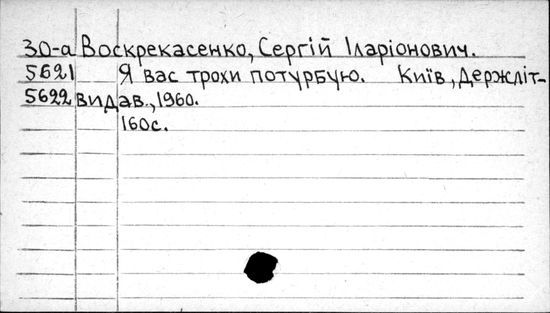 30-а Воскрекасенко, Сергій Іларіонович.
5621 Я вас трохи потурбую. Київ, Держліт-
5622 видав., 1960.
160с.